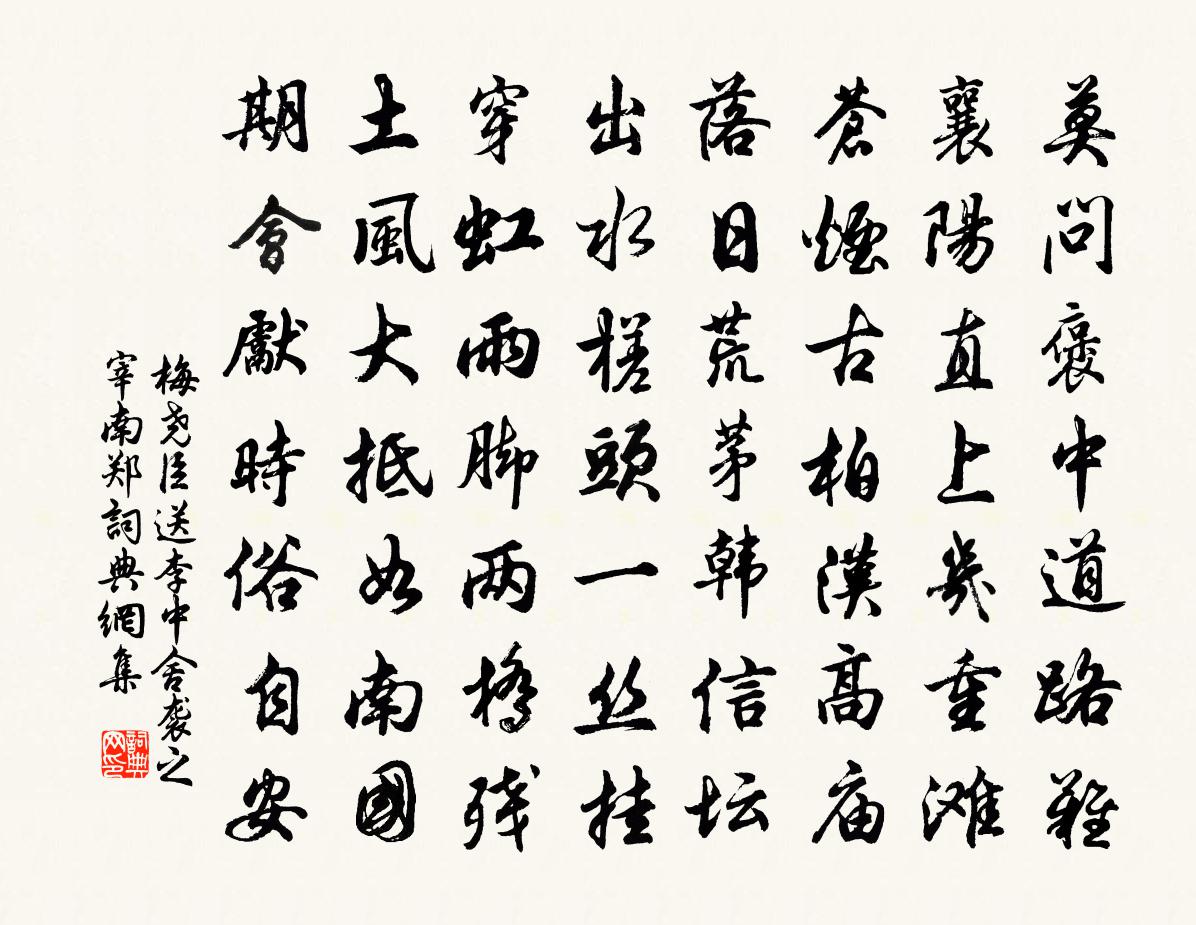 莫問褒中道路難
襄陽直上幾重滩
蒼煙古柏漢高庙
落日荒茅韩信坛
出水槎頭一丝挂
穿虹雨脚两橋残
土風大抵如南國
期會獻時俗自安
梅尧臣送李中舍袭之
宰南郑詞典網集
詞典网印